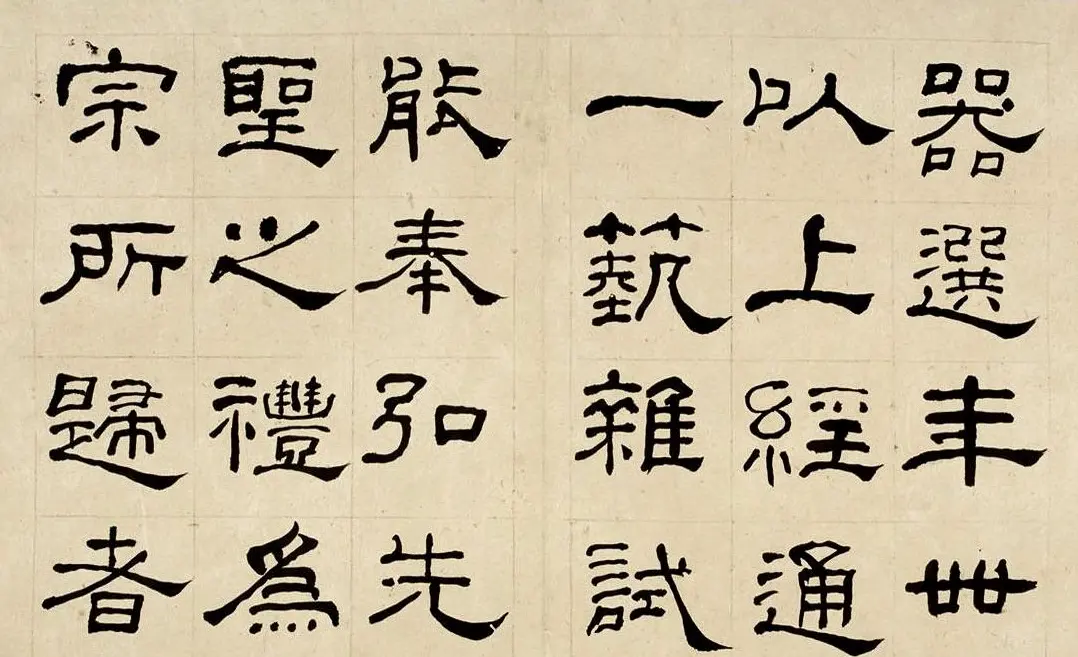 器選年卌
以上經通
一藝雜試
能奉弘先
聖之禮為
宗所歸者